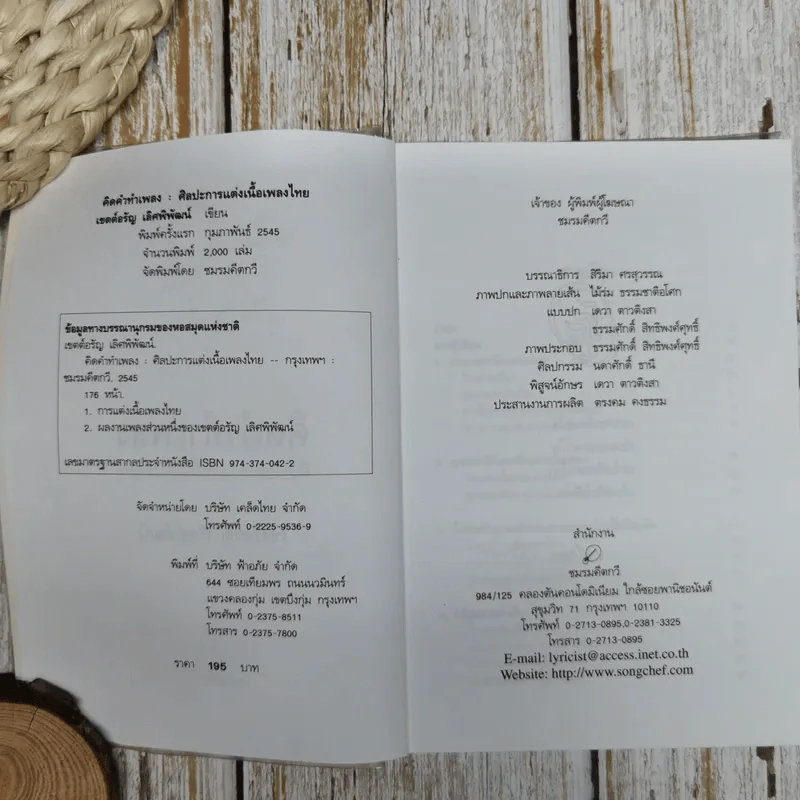 คิดคำทำเพลง : ศิลปะการแต่งเนื้อเพลงไทย
เขตต์อรัญ เลิศพิพัฒน์ เขียน
พิมพ์ครั้งแรก กุมภาพันธ์ 2545
จำนวนพิมพ์ 2,000 เล่ม
จัดพิมพ์โดย ชมรมคีตกวี
ข้อมูลทางบรรณานุกรมของหอสมุดแห่งชาติ
เขตต์อรัญ เลิศพิพัฒน์.
คิดคำทำเพลง : ศิลปะการแต่งเนื้อเพลงไทย -- กรุงเทพฯ :
ชมรมคีตกวี. 2545
176 หน้า.
1. การแต่งเนื้อเพลงไทย
2. ผลงานเพลงส่วนหนึ่งของเขตต์อรัญ เลิศพิพัฒน์
เลขมาตรฐานสากลประจำหนังสือ ISBN 974-374-042-2
จัดจำหน่ายโดย บริษัท เคล็ดไทย จำกัด
โทรศัพท์ 0-2225-9536-9
พิมพ์ที่ บริษัท ฟ้าอภัย จำกัด
644 ซอยเทียมพร ถนนนวมินทร์
แขวงคลองกุ่ม เขตบึงกุ่ม กรุงเทพฯ
โทรศัพท์ 0-2375-8511
โทรสาร 0-2375-7800
ราคา 195 บาท
เจ้าของ ผู้พิมพ์ผู้โฆษณา
ชมรมคีตกวี
บรรณาธิการ สิริมา ศรสุวรรณ
ภาพปกและภาพลายเส้น ไม้ร่ม ธรรมชาติอโศก
แบบปก เดวา ดาวดึงสา
ธรรมศักดิ์ สิทธิพงศ์ศุทธิ์
ภาพประกอบ ธรรมศักดิ์ สิทธิพงศ์ศุทธิ์
ศิลปกรรม นดาศักดิ์ ธานี
พิสูจน์อักษร เดวา ดาวดึงสา
ประสานงานการผลิต ตรงคม คงธรรม
สำนักงาน
ชมรมคีตกวี
984/125 คลองตันคอนโดมิเนียม ใกล้ซอยพานิชอนันต์
สุขุมวิท 71 กรุงเทพฯ 10110
โทรศัพท์ 0-2713-0895,0-2381-3325
โทรสาร 0-2713-0895
E-mail: lyricist@access.inet.co.th
Website: http://www.songchef.com